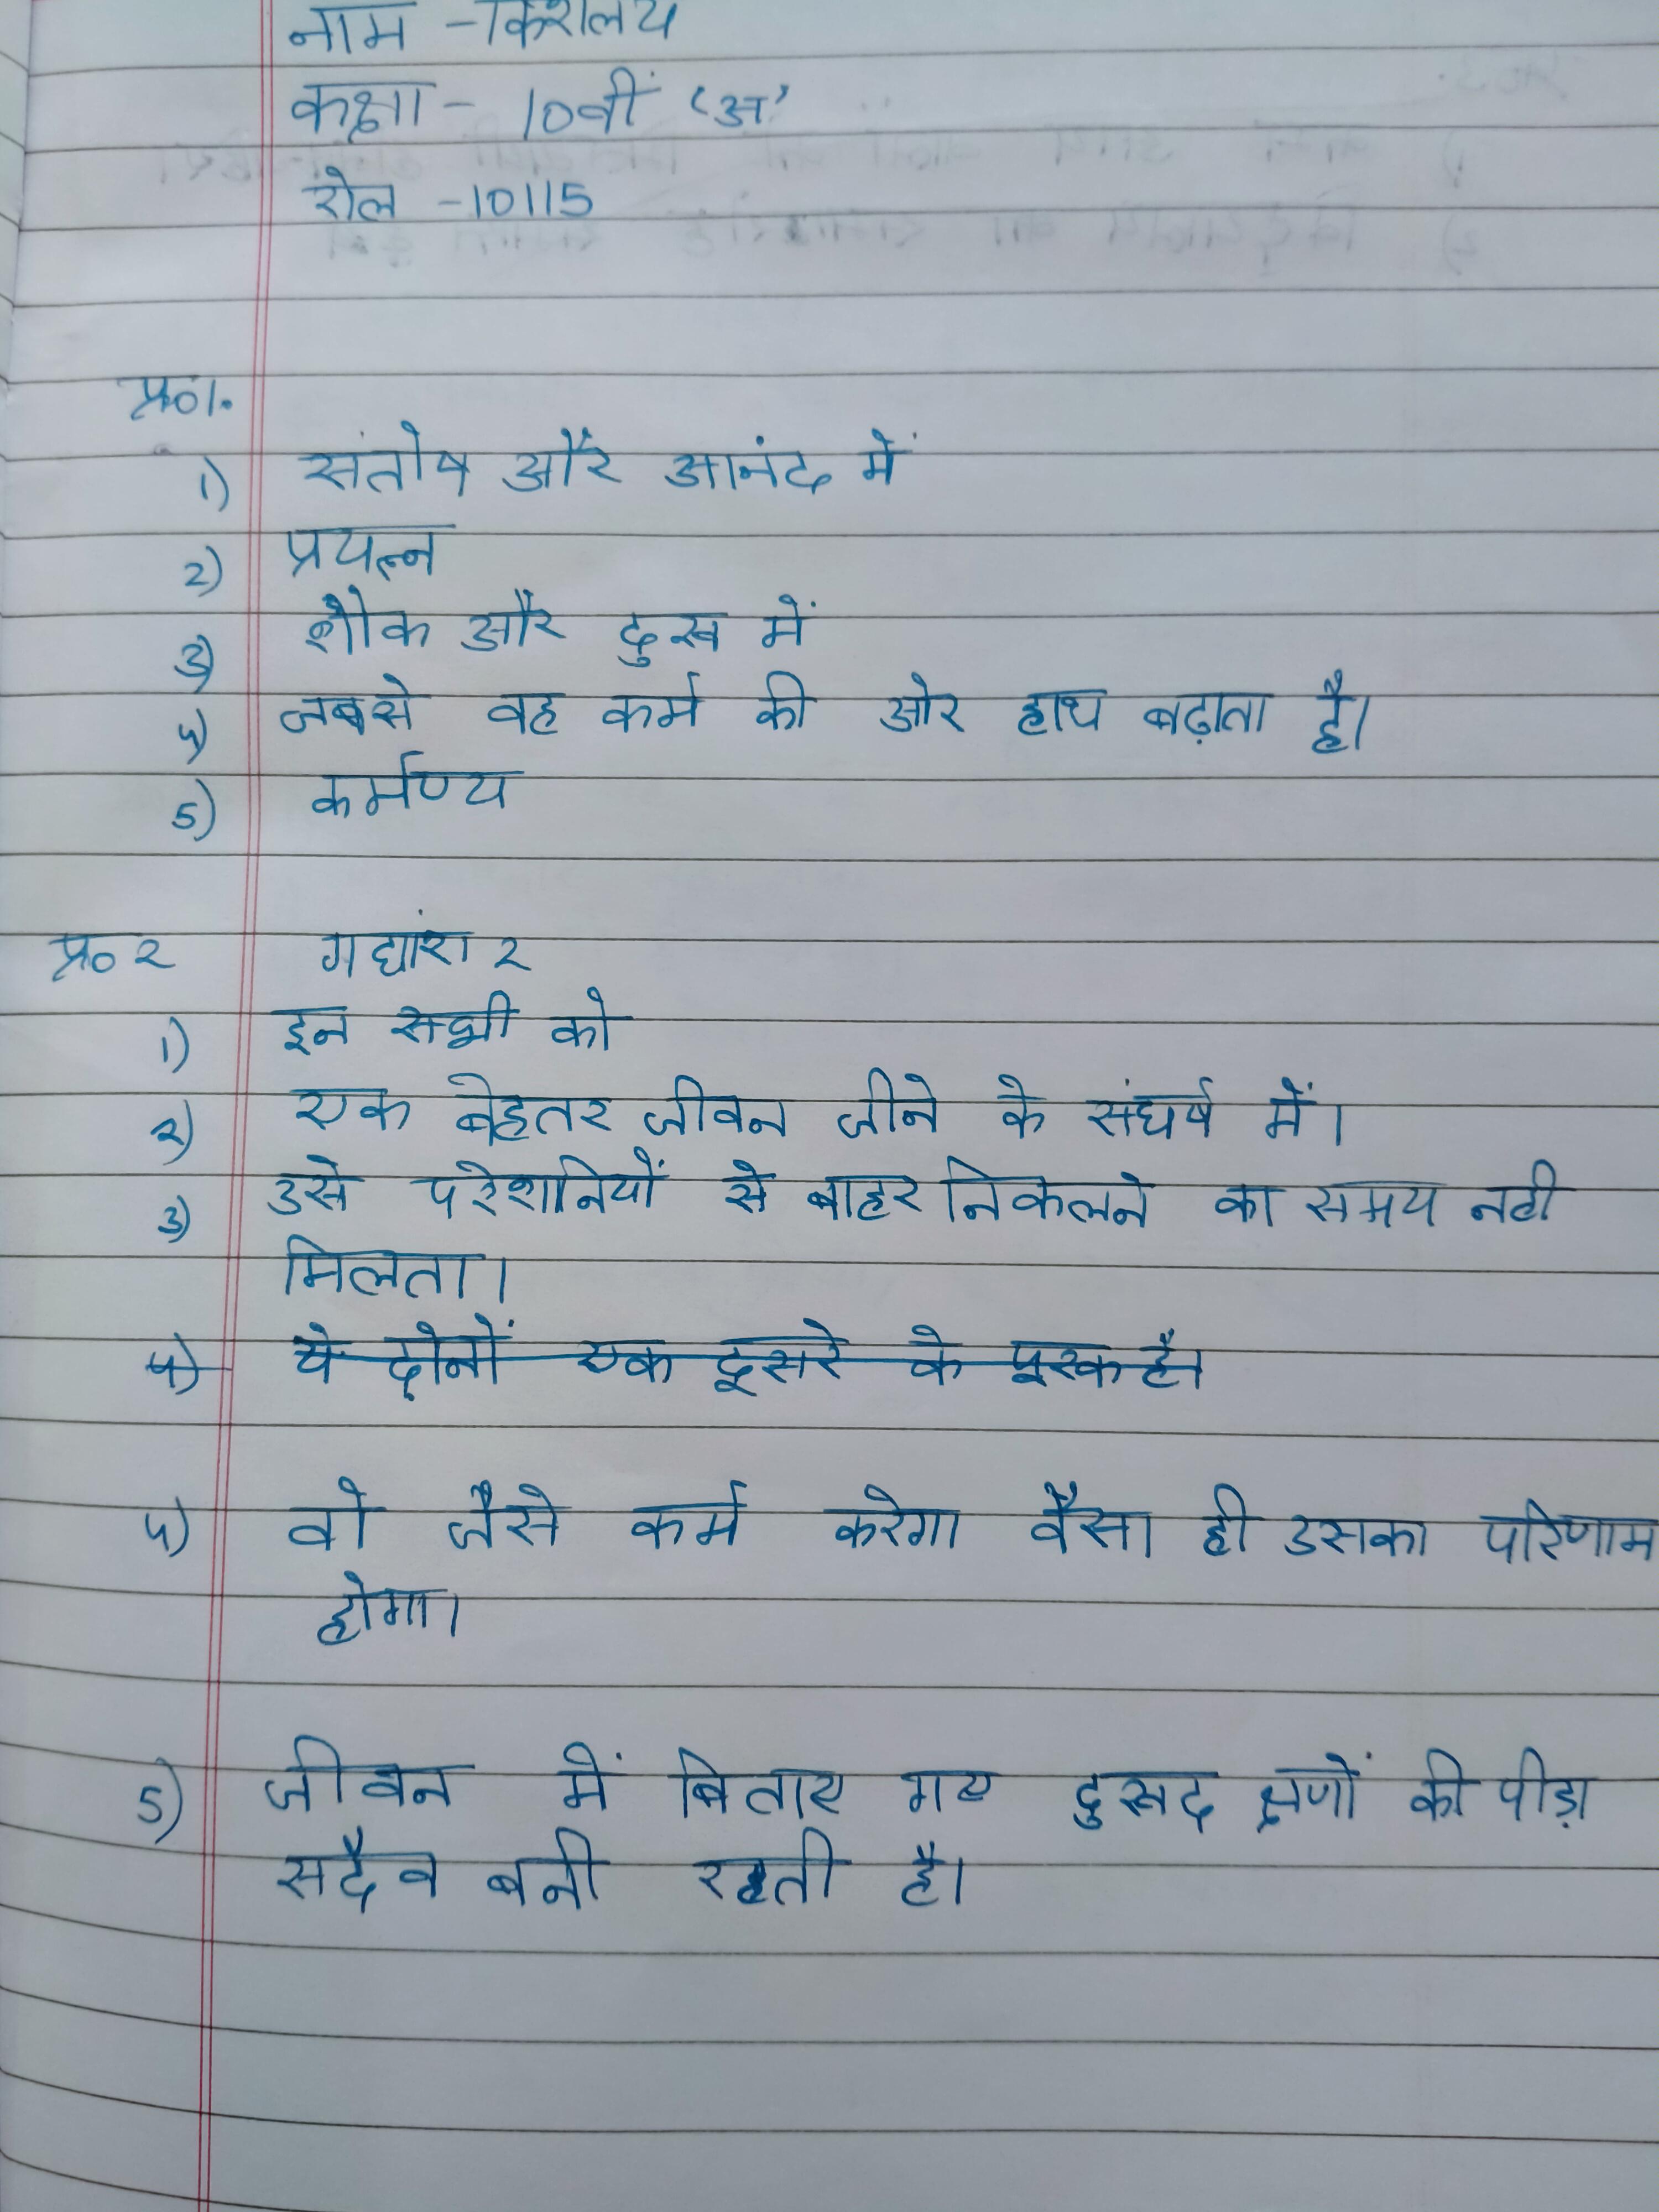 नाम - किशलय
कक्षा - 10वीं 'अ'
रोल - 10115
प्र०1.
1) संतोष और आनंद में
2) प्रयत्न
3) शोक और दुख में
4) जबसे वह कर्म की ओर हाथ बढ़ाता है।
5) कर्मण्य
प्र० २ गद्यांश २
1) इन सभी को
२) एक बेहतर जीवन जीने के संघर्ष में।
3) उसे परेशानियों से बाहर निकलने का समय नही
मिलता।
4) ये दोनों एक दूसरे के पूरक है।
4) वो जैसे कर्म करेगा वैसा ही उसका परिणाम
होगा।
5) जीवन में बिताए गए दुखद क्षणों की पीड़ा
सदैव बनी रहती है।